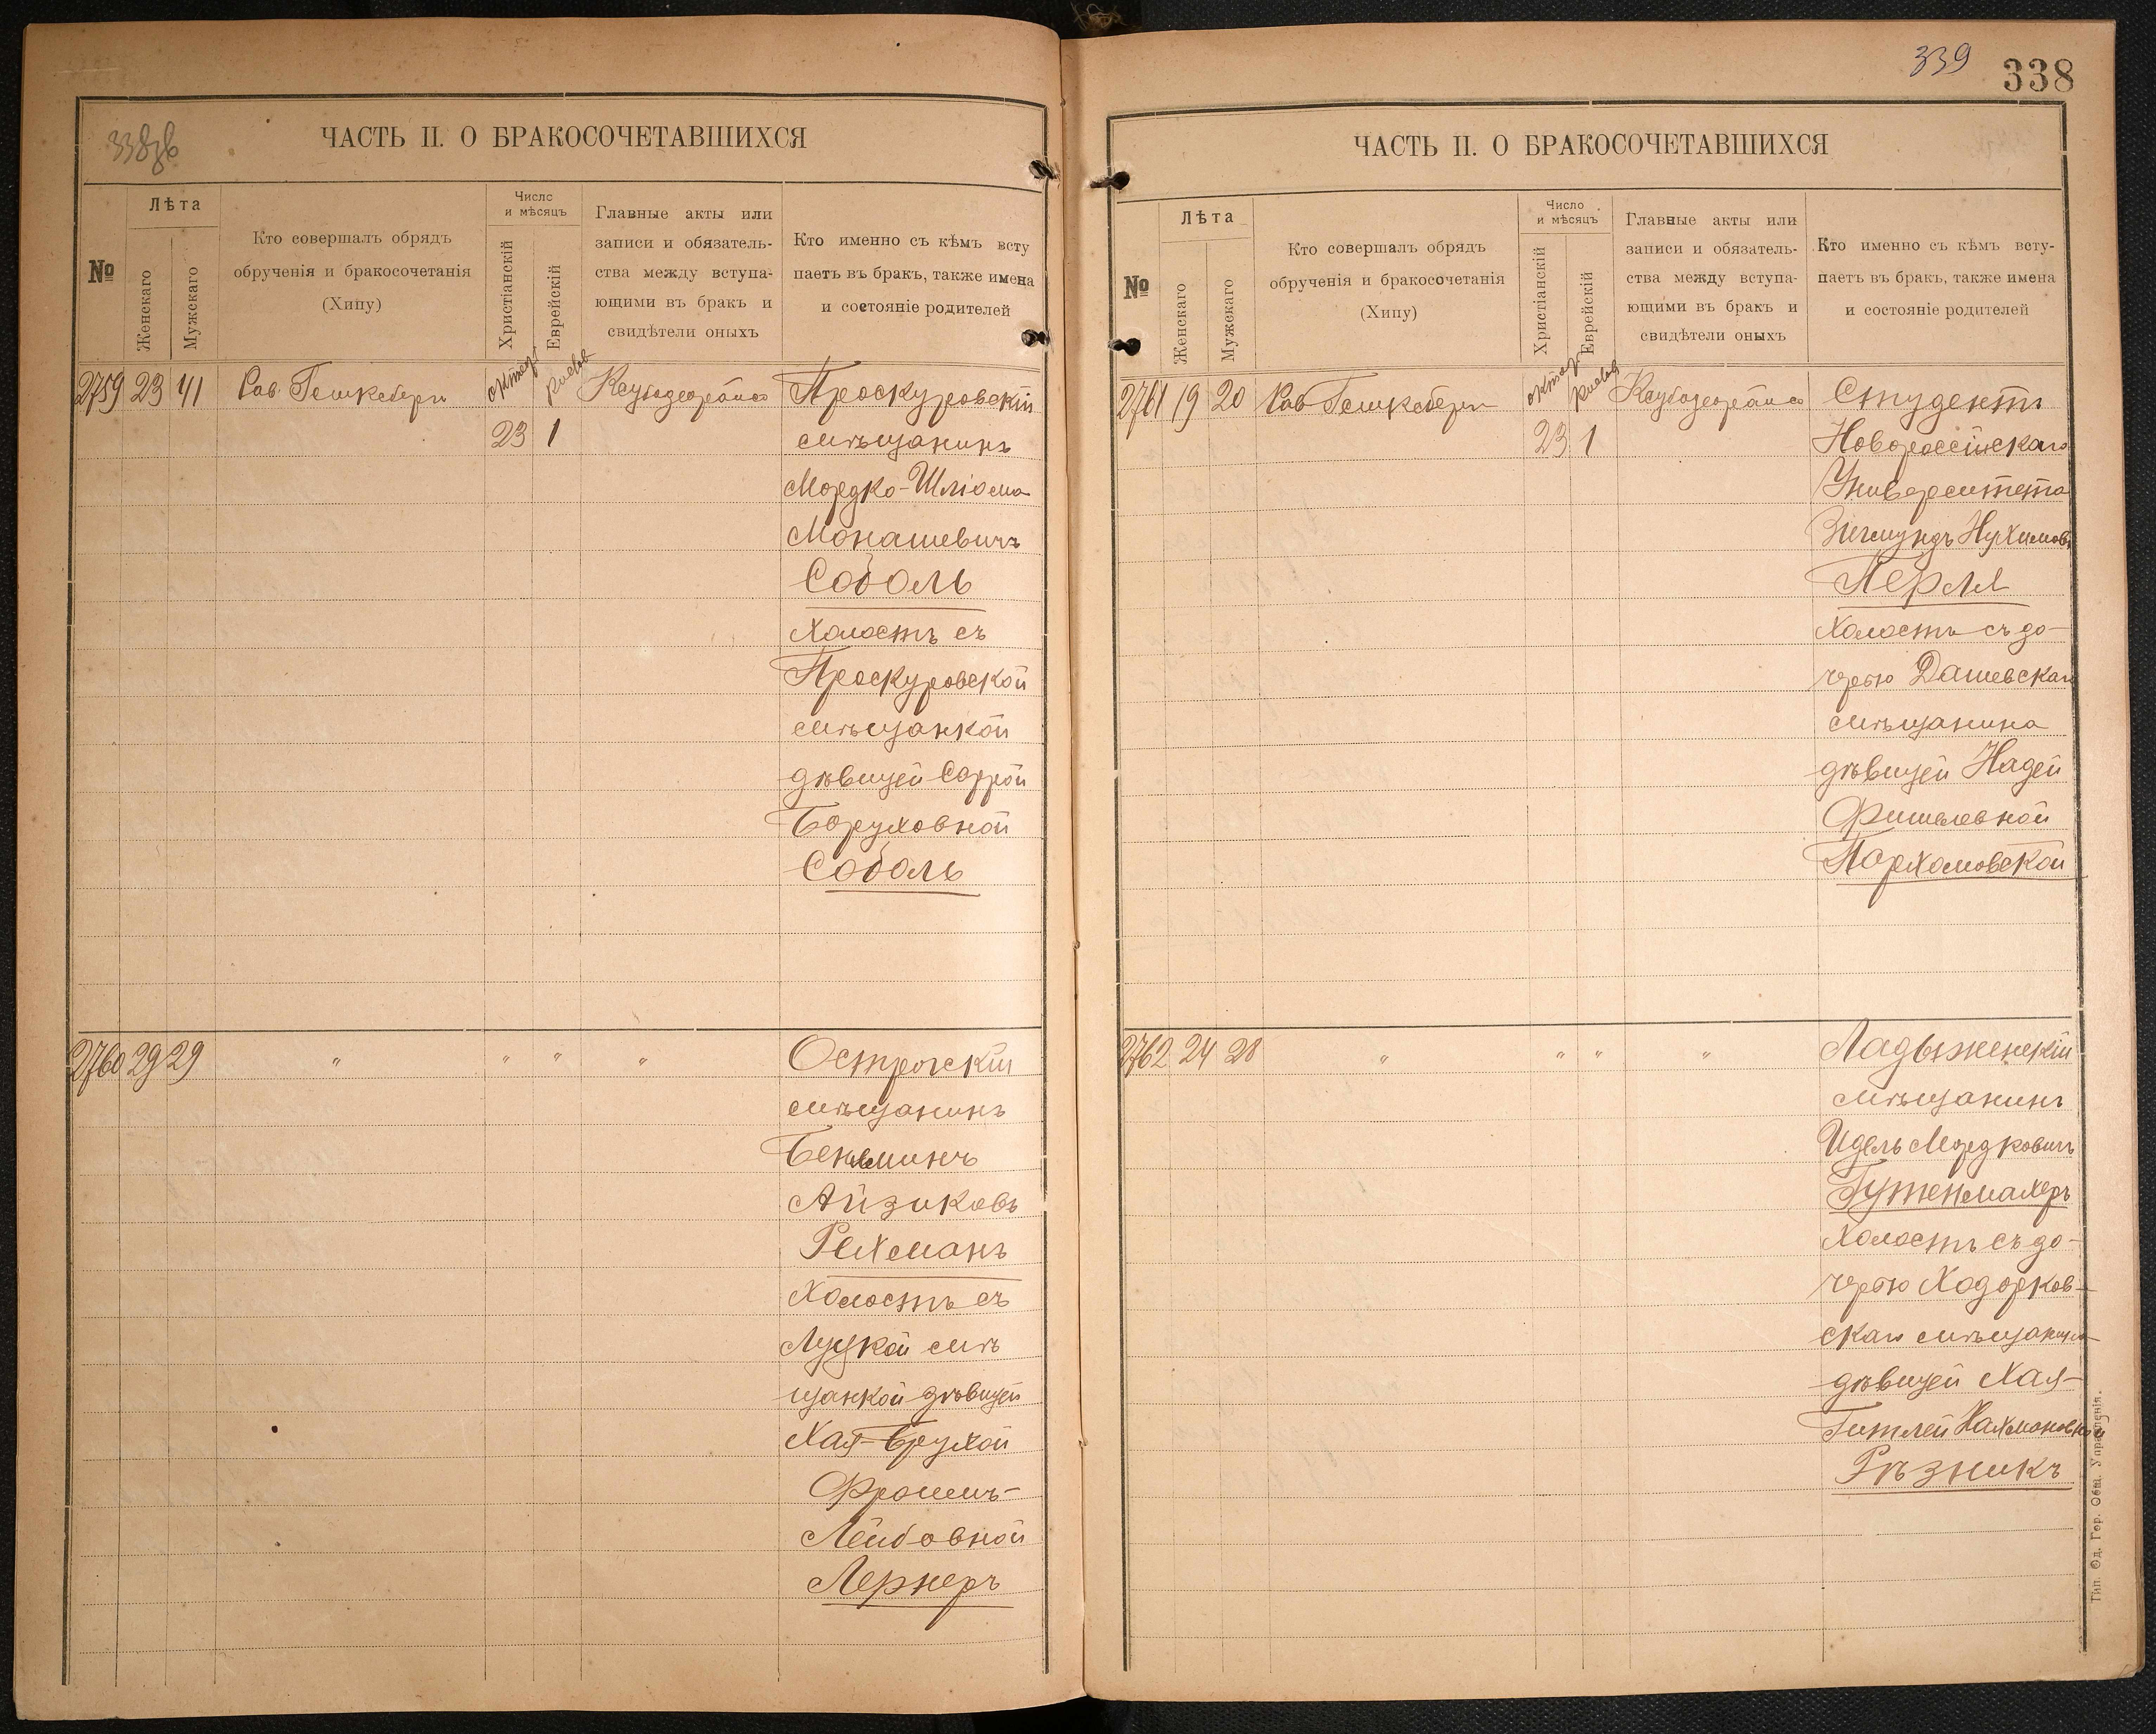 338об
ЧАСТЬ II. О БРАКОСОЧЕТАВШИХСЯ
№
Лѣта
Женскаго
Мужскаго
Кто совершалъ обрядъ
обрученія и бракосочетанія
(Хипу)
Число
и мѣсяцъ
Христіанскій
Еврейскій
Главные акты или
записи и обязатель-
ства между вступа-
ющими въ бракъ и
свидѣтели оныхъ
Кто именно съ кѣмъ всту
паетъ въ бракъ, также имена
и состояніе родителей
2759 23 41 Рав
23 1
Проскуровскій
мѣщанинъ
Мордко-Шліома
Монашевичъ
Соболь
Холостъ съ
Проскуровской
мѣщанкой
дѣвицей Саррой
Боруховной
Соболь
2760 29 29 " " " "
Острогскій
мѣщанинъ
Айзиковъ
Рейхманъ
Холостъ съ
Луцкой мѣ
щанкой дѣвицей
Хая-Брухой
Фроимъ-
Лейбовной
Лернеръ
339
338
ЧАСТЬ II. О БРАКОСОЧЕТАВШИХСЯ
№
Лѣта
Женскаго
Мужскаго
Кто совершалъ обрядъ
обрученія и бракосочетанія
(Хипу)
Число
и мѣсяцъ
Христіанскій
Еврейскій
Главные акты или
записи и обязатель-
ства между вступа-
ющими въ бракъ и
свидѣтели оныхъ
Кто именно съ кѣмъ всту-
паетъ въ бракъ, также имена
и состояніе родителей
2761 19 20 Рав
23 1
Студентъ
Новороссійскаго
Университета
Зигмундъ Нухимовъ
Перля
Холостъ съ до-
черью Дашевскаго
мѣщанина
дѣвицей Надей
Фишелевной
Пархомовской
2762 24 28 " " " "
Ладыженскій
мѣщанинъ
Идель Мордковичъ
Гутенмахеръ
Холостъ съ до-
черью Ходорков-
скаго мѣщанина
дѣвицей Хая-
Гитлей Нахмановной
Рѣзникъ
Тип. Од. Гор. Общ. Управленія.